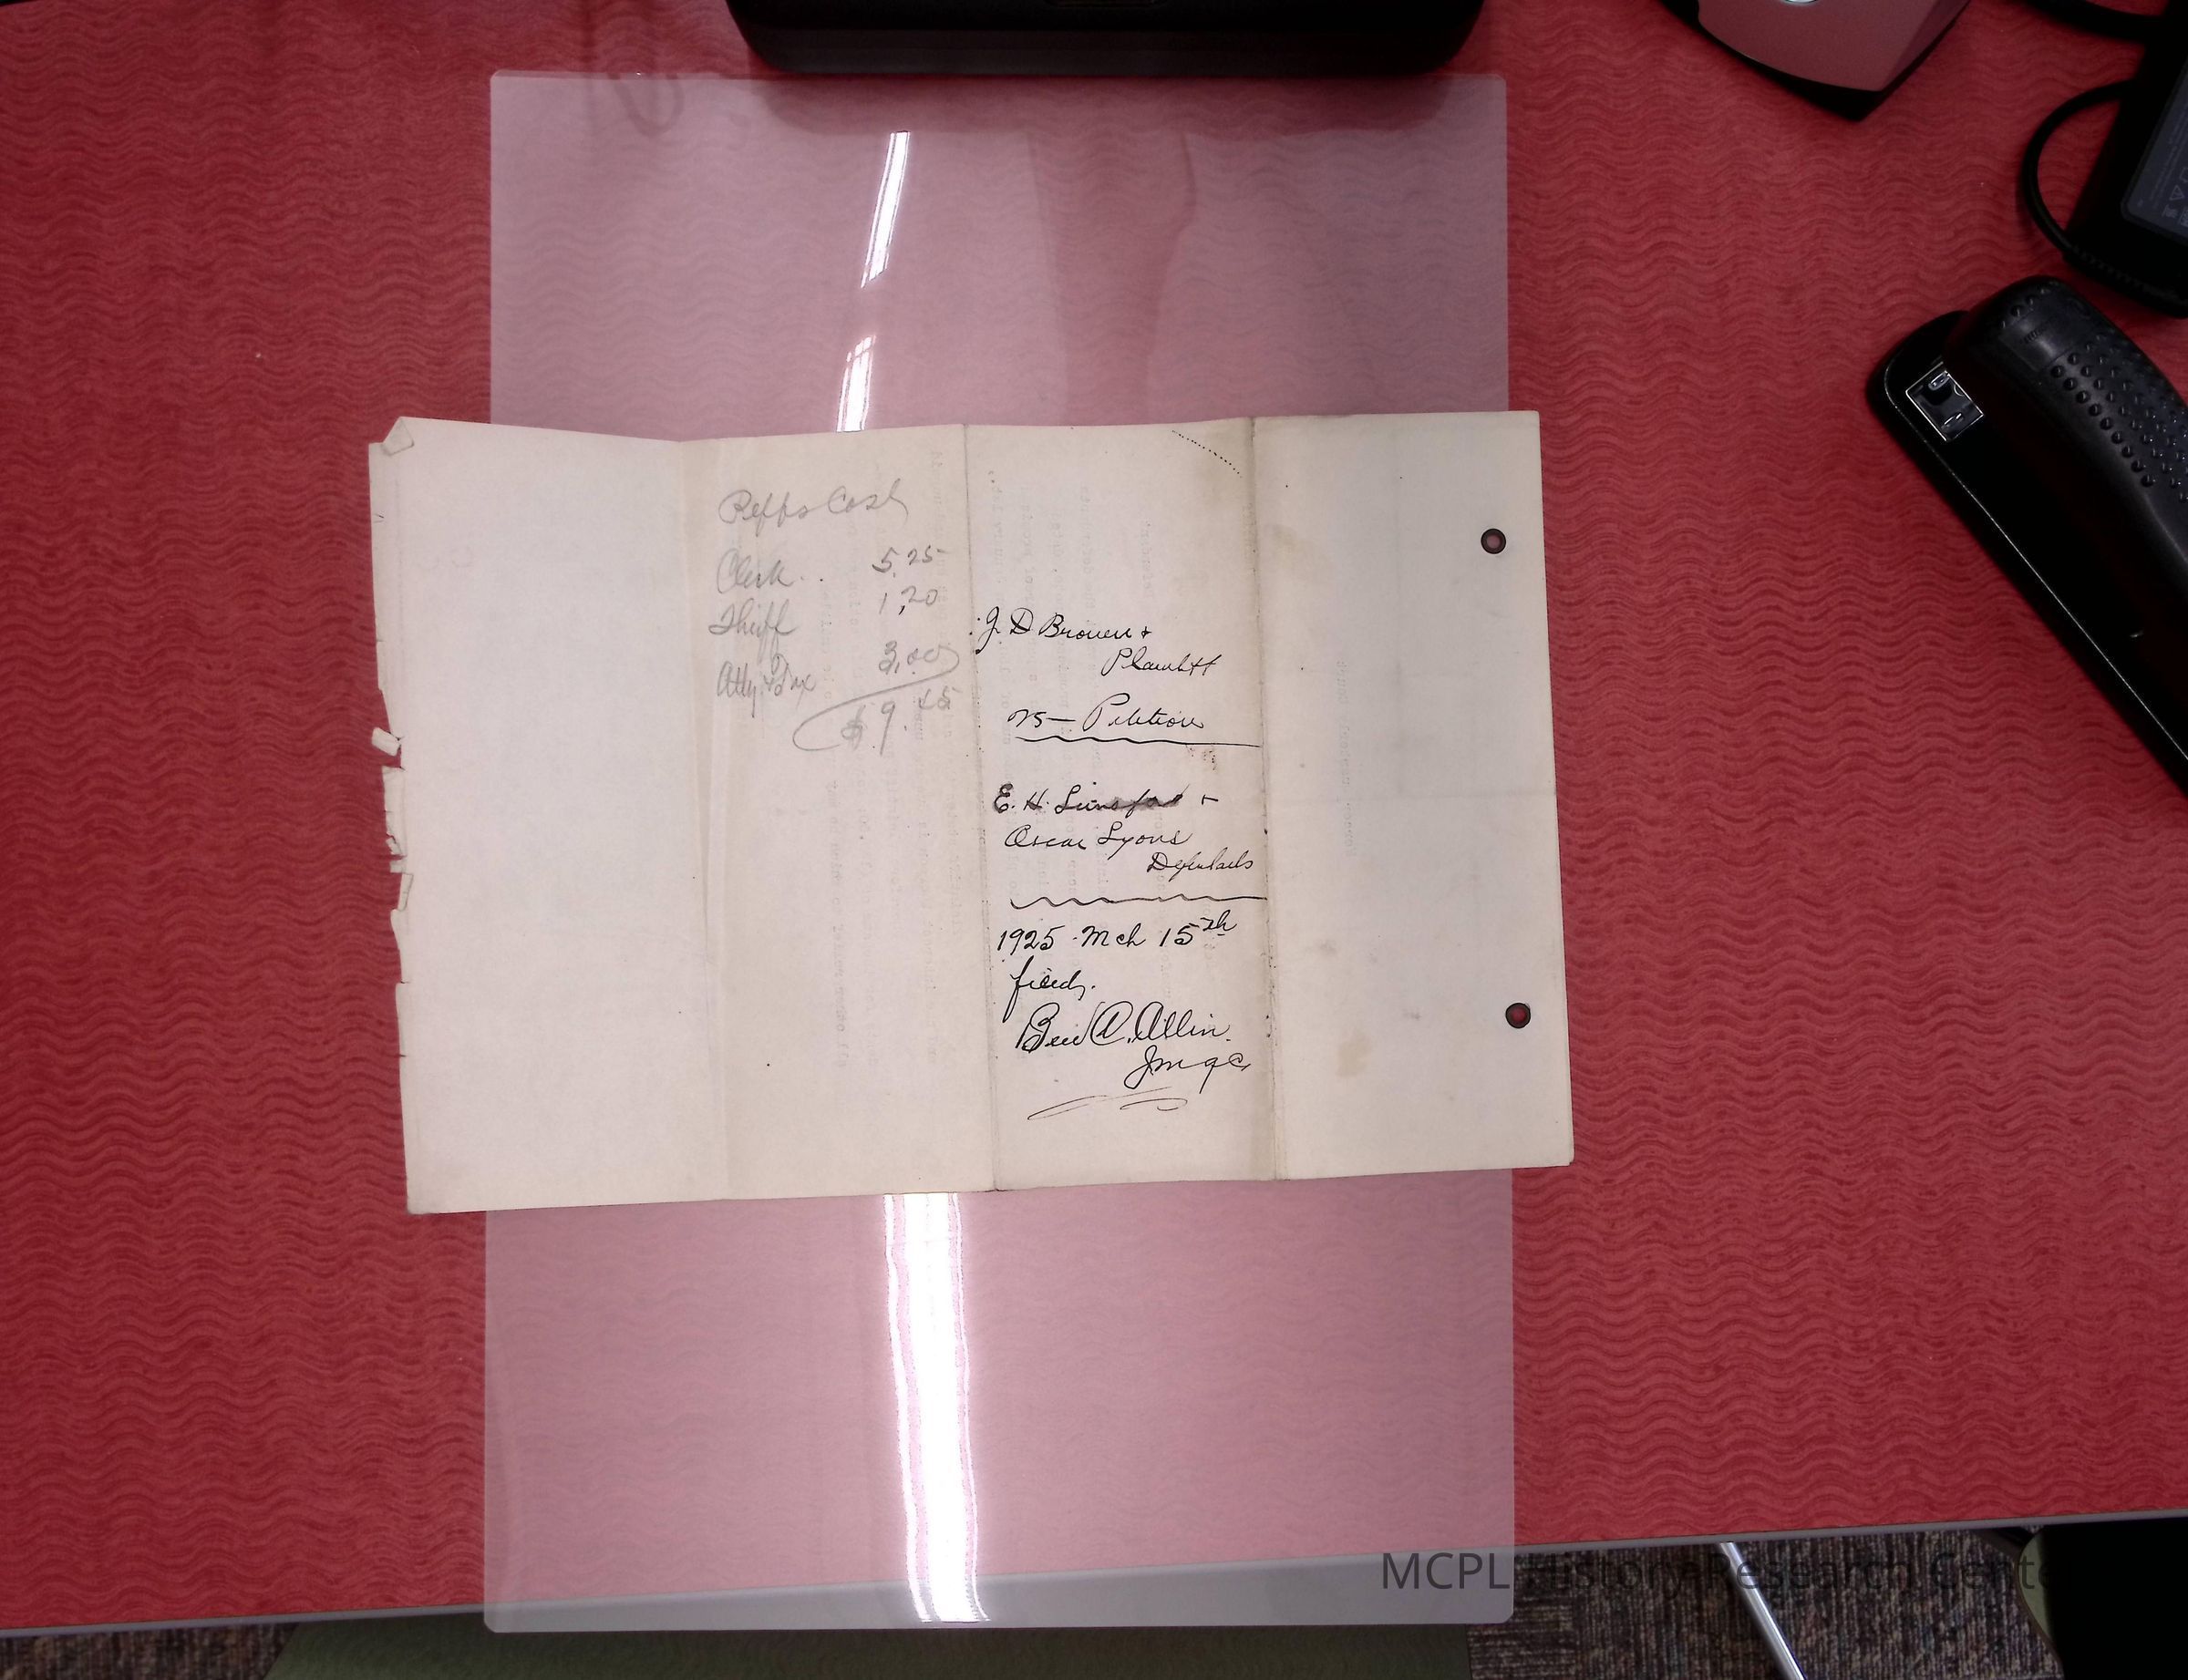 Peffs Cost
Clerk.. 5.25
Shiff 1,20
Atty Tax 3,00
$9.45
J. D Brown +
Plaintff
vs— Petition
E. H. Linsford +
Oscar Lyons
Defendants
1925 Mch 15th
filed,
Ben A. Allin.
Jmqc
MCPL History Research Cente